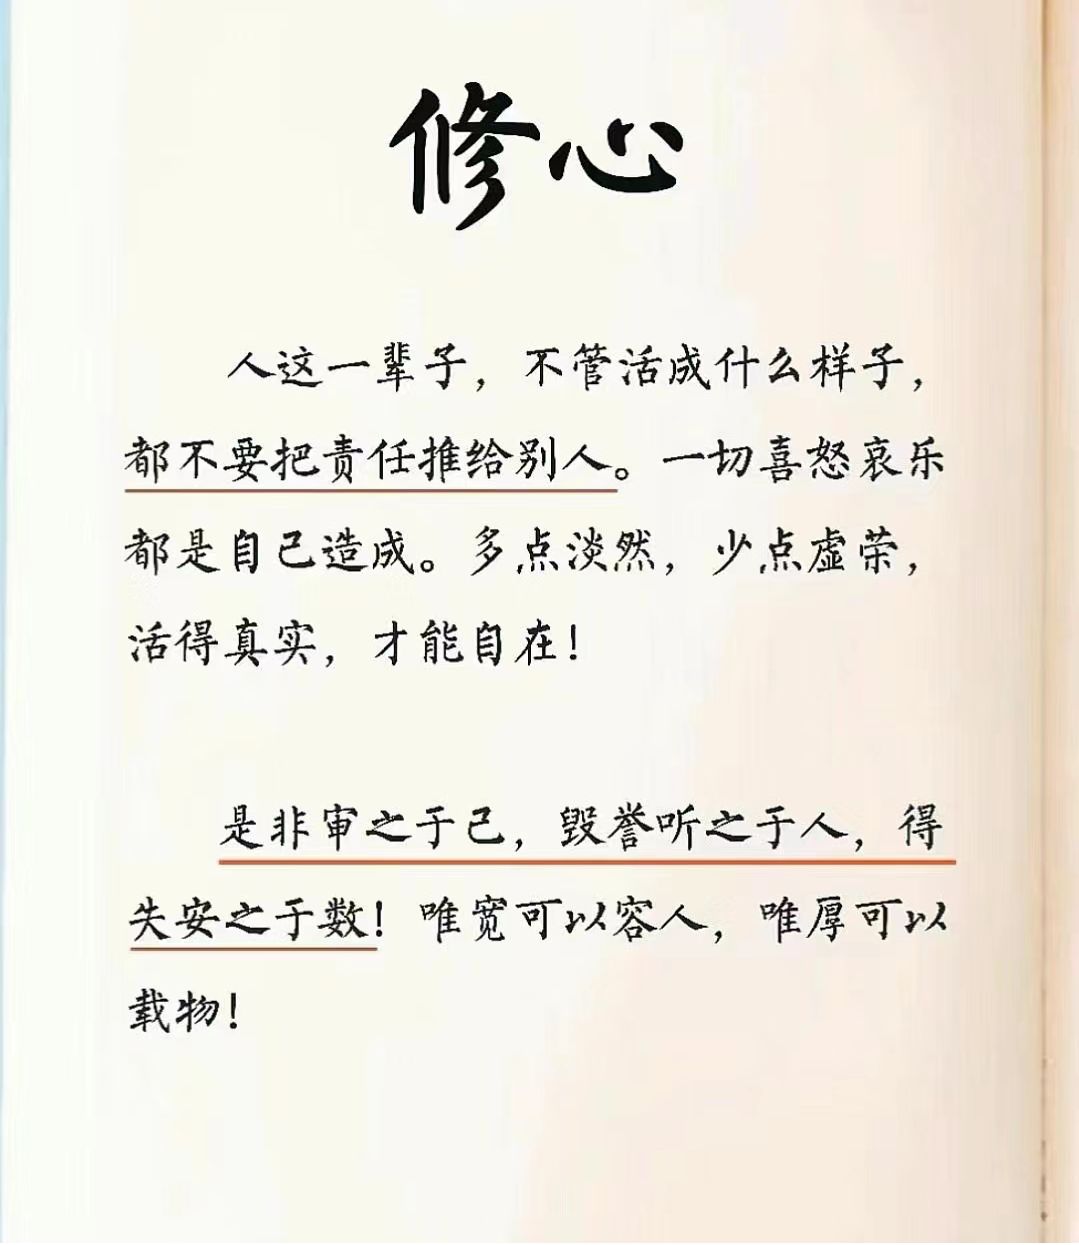 修心
人这一辈子，不管活成什么样子，
都不要把责任推给别人。一切喜怒哀乐
都是自己造成。多点淡然，少点虚荣，
活得真实，才能自在！
是非审之于己，毁誉听之于人，得
失安之于数！唯宽可以容人，唯厚可以
载物！